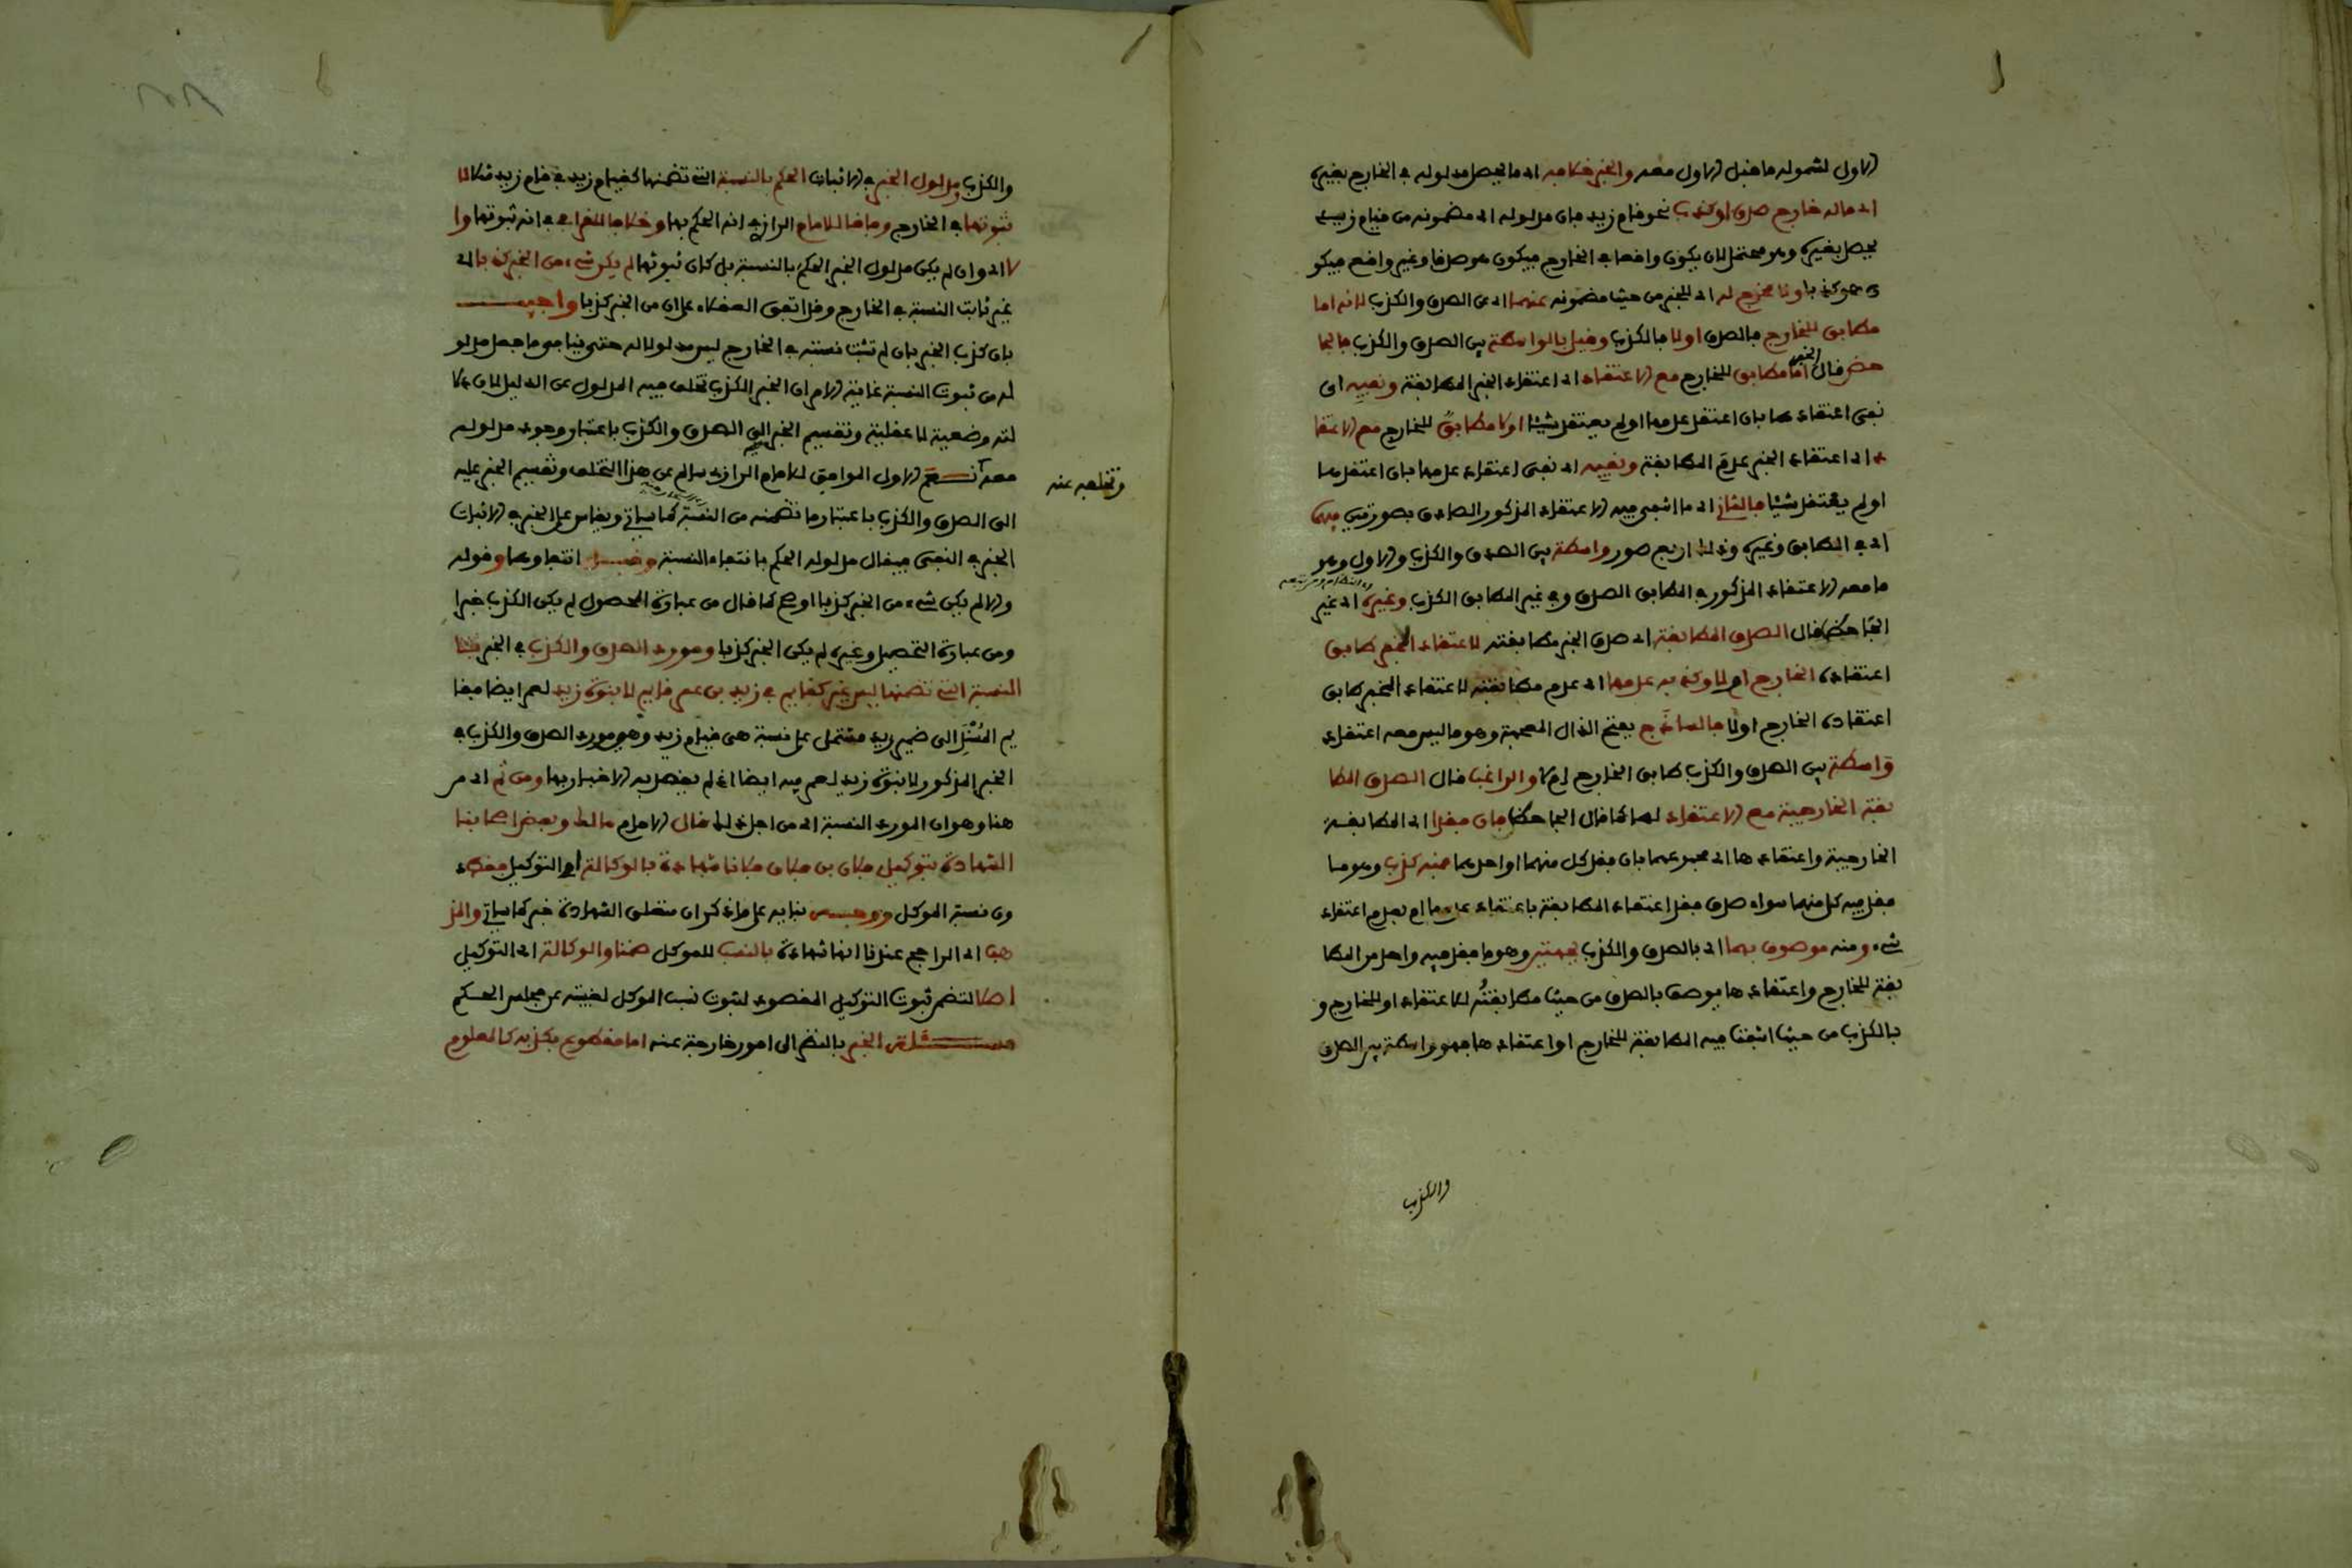 الاول لشموله ما قبل الاول معه والخبر خلافه اي ما يحصل مدلوله في الخارج بغيره
اي ما له خارج صدق او كذب نحو قام زيد فان مدلوله اي مضمونه من قيام زيد
يحصل بغيره وهو محتمل لان يكون واقعا في الخارج فيكون هو صدقا وغير واقع فيكو
ن هو كذبا ولا مخرج له اي للخبر من حيث مضمونه عنهما اي عن الصدق والكذب لانه اما
مطابق للخارج فالصدق اولا فالكذب وقيل بالواسطة بين الصدق والكذب فالجا
حظ قال الخبر اما مطابق للخارج مع الاعتقاد اي اعتقاد المخبر المطابقة ونفيه اي
نفي اعتقادها بان اعتقد عدمها او لم يعتقد شيئا او لا مطابق للخارج مع الاعتقا
د اي اعتقاد المخبر عدم المطابقة ونفيه اي نفي اعتقاد عدمها بان اعتقدها
او لم يعتقد شيئا فالثاني اي ما انتفى فيه الاعتقاد المذكور الصادق بصورتين فيهما
اي في المطابق وغيره وذلك اربع صور واسطة بين الصدق والكذب والاول وهو
ما معه الاعتقاد المذكور في المطابق الصدق وفي غير المطابق الكذب وغيره اي غير
الجاحظ قال الصدق المطابقة اي صدق الخبر مطابقته لاعتقاد المخبر طابق
اعتقاده الخارج اولا وكذبه عدمها اي عدم مطابقته لاعتقاد المخبر طابق
اعتقاده الخارج اولا فالساذَج بفتح الذال المعجمة وهو ما ليس معه اعتقاد
واسطة بين الصدق والكذب طابق الخارج ام لا والراغب قال الصدق المطا
بقة الخارجية مع الاعتقاد لها كما قال الجاحظ فان فقدا اي المطابقة
الخارجية واعتقادها اي مجموعهما بان فقد كل منهما او احدهما فمنه كذب وهو ما
فقد فيه كل منهما سواء صدق فقد اعتقاد المطابقة باعتقاد عدمها ام بعدم اعتقاد
شيء ومنه موصوف بهما اي بالصدق والكذب بجهتين وهو ما فقد فيه واحد من المطا
بقة للخارج واعتقادها يوصف بالصدق من حيث مطابقتُه للاعتقاد او للخارج و
بالكذب من حيث انتفت فيه المطابقة للخارج او اعتقادها فهو واسطة بين الصدق
والكذب
والكذب ومدلول الخبر في الاثبات الحكم بالنسبة التي تضمنها كقيام زيد في قام زيد مثلا لا
ثبوتها في الخارج وفاقا للامام الرازي في انه الحكم بها وخلافا للقرافي في انه ثبوتها وا
لا اي وان لم يكن مدلول الخبر الحكم بالنسبة بل كان ثبوتها لم يكن شيء من الخبر كذبا اي
غير ثابت النسبة في الخارج وقد اتفق العقلاء على ان من الخبر كذبا واجيب
بان كذب الخبر بان لم تثبت نسبته في الخارج ليس مدلولا له حتى ينافي ما جعل مدلو
له من ثبوت النسبة غاية الامر ان الخبر الكذب تخلف فيه المدلول عن الدليل لان دلا
لته وضعية لا عقلية وتقسيم الخبر الى الصدق والكذب باعتبار وجود مدلوله
معه وتخلفه عنه نعم الاول الموافق للامام الرازي سالم عن هذا التخلف وتقسيم الخبر عليه
الى الصدق والكذب باعتبار ما تضمنه من النسبة كما سياتي ويقاس على الخبر في الاثبات
الخبر في النفي فيقال مدلوله الحكم بانتفاء النسبة وقيل انتفاؤها وقوله
والا لم يكن شيء من الخبر كذبا اوضح كما قال من عبارة المحصول لم يكن الكذب خبرا
ومن عبارة التحصيل وغيره لم يكن الخبر كذبا ومورد الصدق والكذب في الخبر
النسبة التي تضمنها ليس غير كقايم في زيد بن عمر قايم لا بنوة زيد لعمر ايضا فقا
يم المُسْنَد الى ضمير زيد مشتمل على نسبة هي قيام زيد وهو مورد الصدق والكذب في
الخبر المذكور لا بنوة زيد لعمر فيه ايضا اذ لم يقصد به الاخبار بها ومن ثَم اي من
هنا وهو ان المورد النسبة اي من اجل ذلك قال الامام مالك وبعض اصحابنا
الشهادة بتوكيل فلان بن فلان فلانا شهادة بالوكالة اي التوكيل فقط د
ون نسبة الموكل ووجه بنايه على ما ذكر ان متعلق الشهادة خبر كما سياتي والمذ
هب اي الراجح عندنا انها شهادة بالنسب للموكل ضمنا والوكالة اي التوكيل
اصلا لتضمن ثبوت التوكيل المقصود لثبوت نسب الموكل لغيبته عن مجلس الحكم
مسئلة الخبر بالنظر الى امور خارجة عنه اما مقطوع بكذبه كالمعلوم